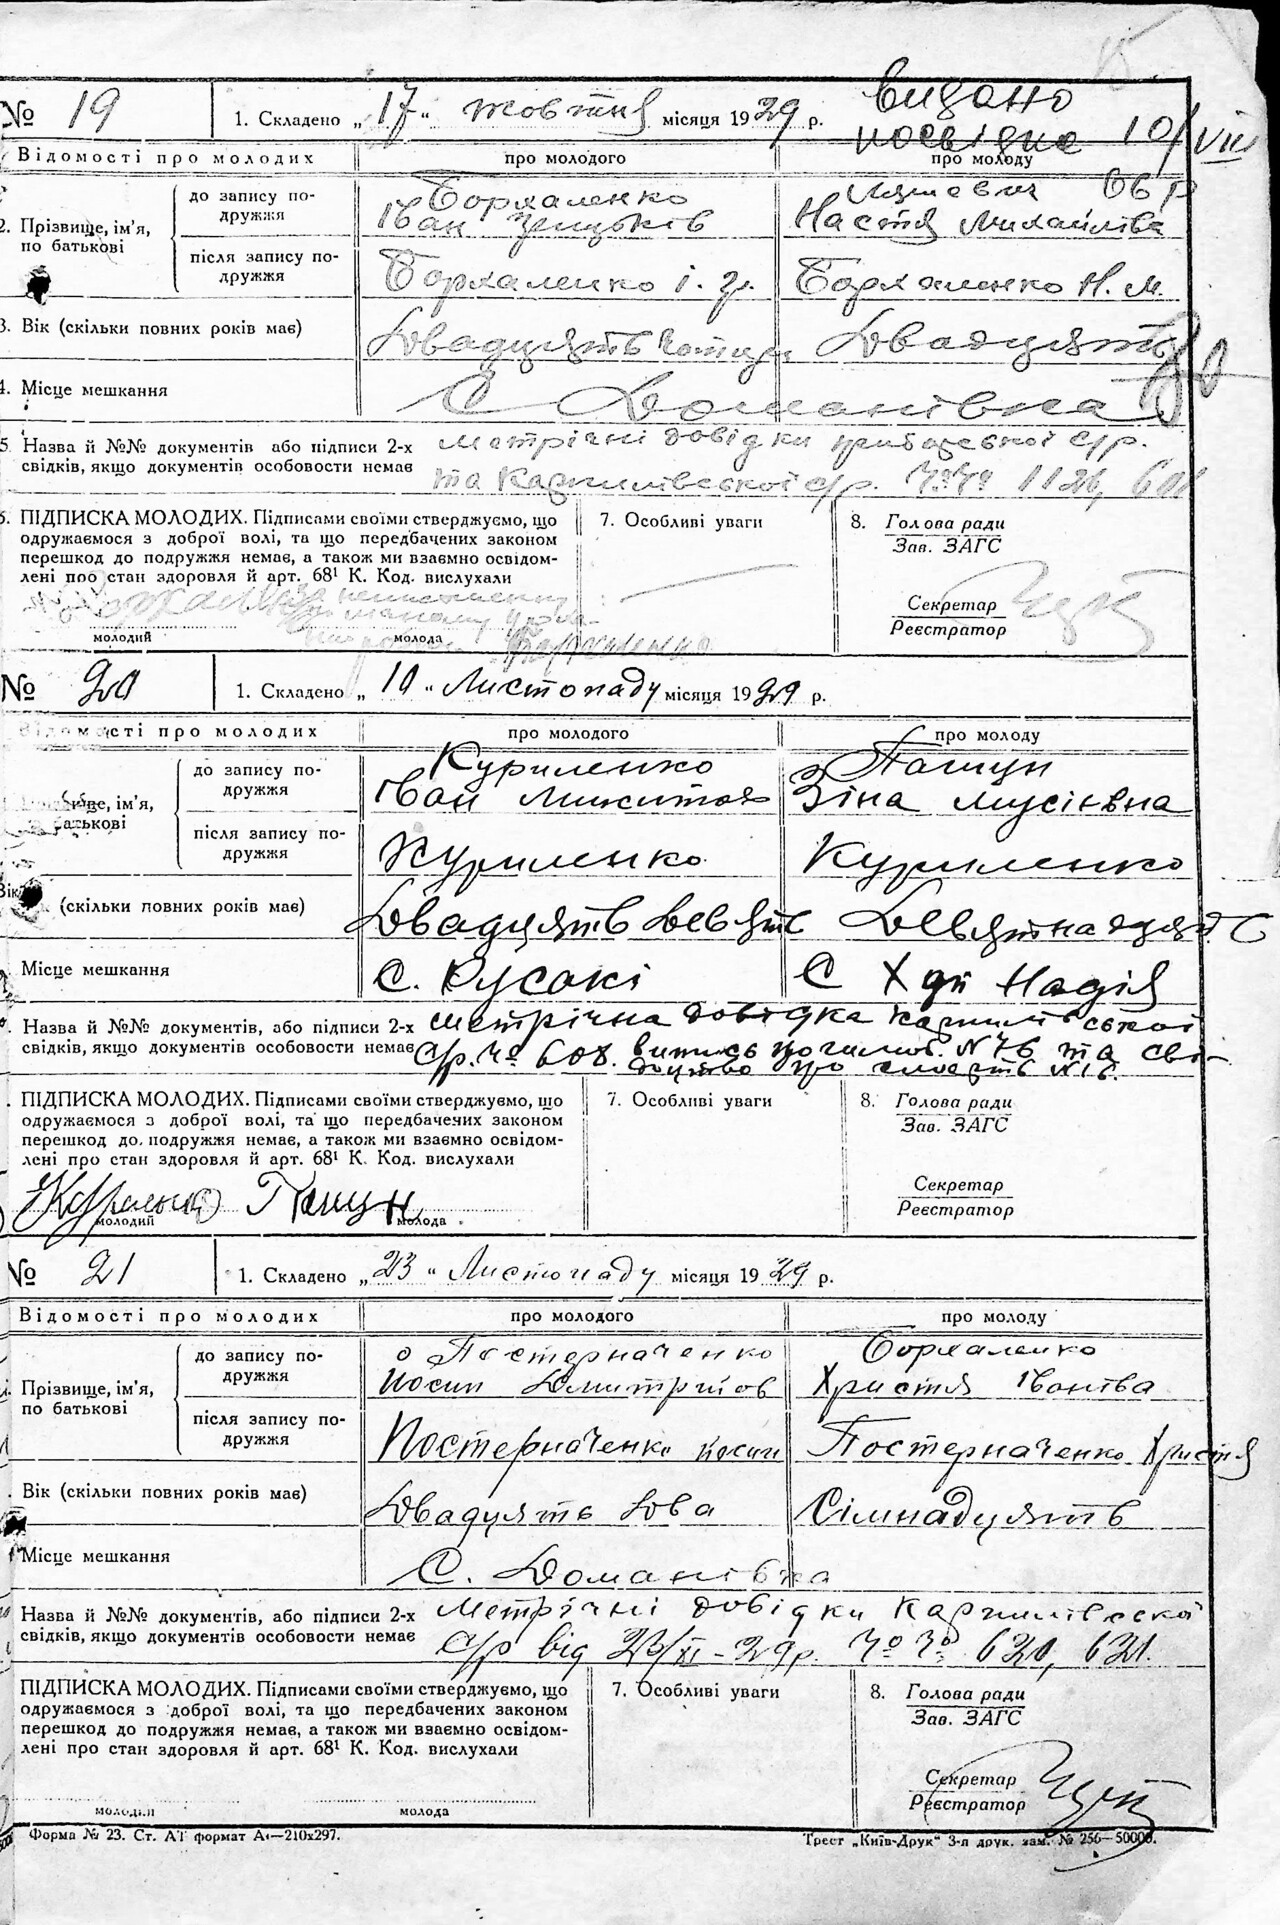 № 19
1. Складено „17“ жовтня місяця 1929 р.
видано
посвідка 10/VIII
Відомості про молодих
про молодого
про молоду
2. Прізвище, ім'я, по батькові
до запису по-
дружжя
Іван
Настя Михайлівна
після запису по-
дружжя
3. Вік (скільки повних років має)
Двадцять чотири
Двадцять
4. Місце мешкання
С Доманівка
5. Назва й №№ документів або підписи 2-х
свідків, якщо документів особовости немає
метрічні довідки с/р.
та Карпилівської с/р. №№ 1126, 601
6. ПІДПИСКА МОЛОДИХ. Підписами своїми стверджуємо, що
одружаємося з доброї волі, та що передбачених законом
перешкод до подружжя немає, а також ми взаємно освідом-
лені про стан здоров'я й арт. 68¹ К. Код. вислухали
молодий
молода
7. Особливі уваги
8. Голова ради
Зав. ЗАГС
Секретар
Реєстратор
№ 20
1. Складено „10“ Листопаду місяця 1929 р.
Відомості про молодих
про молодого
про молоду
Прізвище, ім'я,
по батькові
до запису по-
дружжя
Куриленко
Іван Микитов
Пашун
Зіна Мусіївна
після запису по-
дружжя
Куриленко
Куриленко
Вік (скільки повних років має)
Двадцять девять
Девятнадцять
Місце мешкання
С. Русакі
С Хут Надія
Назва й №№ документів, або підписи 2-х
свідків, якщо документів особовости немає
метрічна довідка Карпилівської
с/р. № 608. випись N 76 та сві-
доцтво про смерть N 16.
ПІДПИСКА МОЛОДИХ. Підписами своїми стверджуємо, що
одружаємося з доброї волі, та що передбачених законом
перешкод до подружжя немає, а також ми взаємно освідом-
лені про стан здоров'я й арт. 68¹ К. Код. вислухали
Куриленко Пашун
молодий
молода
7. Особливі уваги
8. Голова ради
Зав. ЗАГС
Секретар
Реєстратор
№ 21
1. Складено „23“ Листопаду місяця 1929 р.
Відомості про молодих
про молодого
про молоду
Прізвище, ім'я,
по батькові
до запису по-
дружжя
Постерначенко
Йосип Дмитритов
Борхаленко
Христя Іванівна
після запису по-
дружжя
Постерначенко Йосип
Постерначенко Христя
Вік (скільки повних років має)
Двадцять два
Сімнадцять
Місце мешкання
С. Доманівка
Назва й №№ документів, або підписи 2-х
свідків, якщо документів особовости немає
Метрічні довідки Карпилівської
с/р від 23/XI-29р. №№ 620, 621.
ПІДПИСКА МОЛОДИХ. Підписами своїми стверджуємо, що
одружаємося з доброї волі, та що передбачених законом
перешкод до подружжя немає, а також ми взаємно освідом-
лені про стан здоров'я й арт. 68¹ К. Код. вислухали
молодий
молода
7. Особливі уваги
8. Голова ради
Зав. ЗАГС
Секретар
Реєстратор
Форма № 23. Ст. АТ формат А4—210х297.
Трест „Київ-Друк“ 3-я друк. зам. № 256—50000.